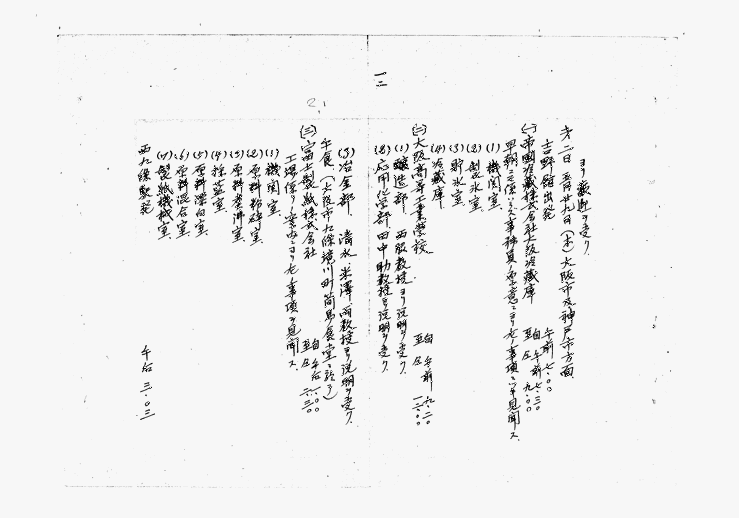 一二
ヨリ歓迎ヲ受ク
第二日 五月廿九日(木)大阪市及神戸市方面
吉野館出発 午前 七・〇〇
(一)帝国冷蔵株式会社大阪冷蔵庫 自 午前 七・三〇 至 仝 九・〇〇
早朝ニ係ハラス事務員ノ厚意ニヨリ左ノ事項ニツキ見聞ス
(1) 機関室
(2) 製氷室
(3) 貯氷室
(4) 冷蔵庫
(二)大阪高等工業学校 自 午前 九・二〇 至 仝 一二・〇〇
(1) 醸造部 西脇教授ヨリ説明ヲ受ク
(2) 応用化学部 田中助教授ヨリ説明ヲ受ク
(3) 冶金部 清水、米澤両教授ヨリ説明ヲ受ク
午食(大阪市九條境川町簡易食堂ニ於テ)
(三)富士製紙株式会社 自 午后 一・〇〇 至 仝 二・三〇
工場係リノ案内ニヨリ左ノ事項ヲ見聞ス
(1) 機関室
(2) 原料粉砕室
(3) 原料煮沸室
(4) 除塵室
(5) 原料漂白室
(6) 原料混合室
(7) 製紙機械室
西九條駅発 午后 三・〇三